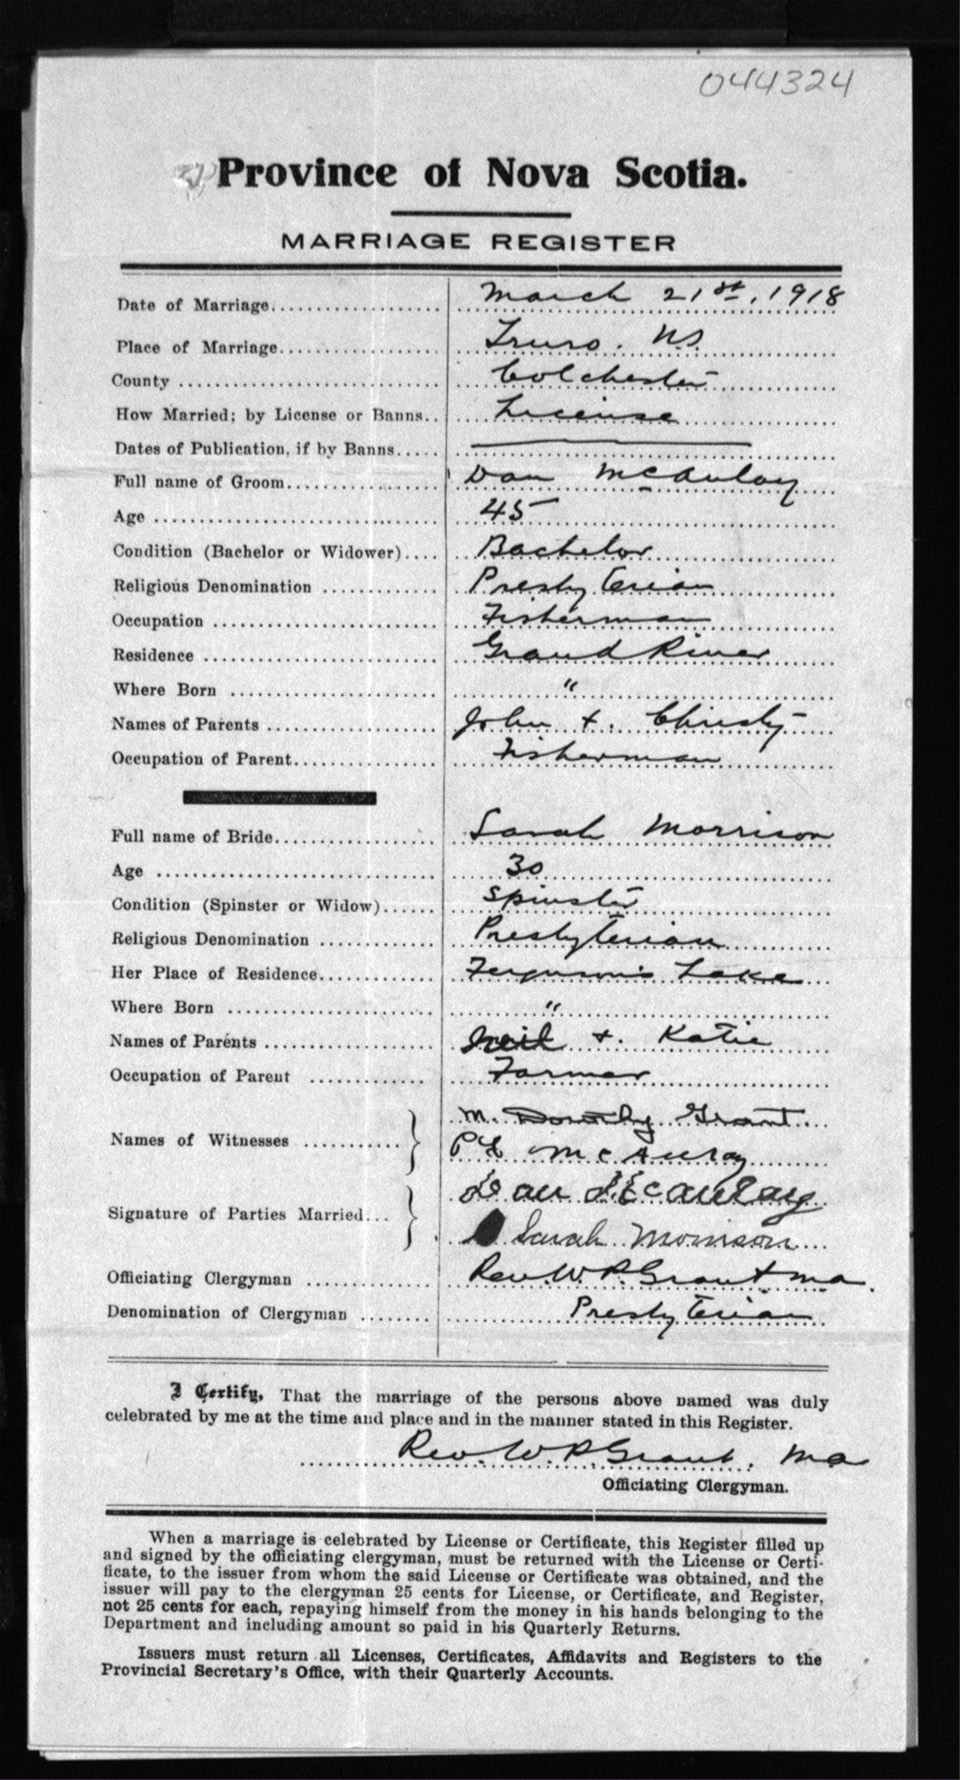 044324
Province of Nova Scotia.
MARRIAGE REGISTER
Date of Marriage................... March 21st, 1918
Place of Marriage................... Truro. NS
County ................... Colchester
How Married; by License or Banns.. License
Dates of Publication, if by Banns.....
Full name of Groom................... Dan McAulay
Age ................... 45
Condition (Bachelor or Widower).... Bachelor
Religious Denomination ............. Presbyterian
Occupation ................... Fisherman
Residence ................... Grand River
Where Born ................... "
Names of Parents ................... John +. Christy
Occupation of Parent................. Fisherman
Full name of Bride................... Sarah Morrison
Age ................... 30
Condition (Spinster or Widow)...... Spinster
Religious Denomination ............. Presbyterian
Her Place of Residence............. Ferguson's Lake
Where Born ................... "
Names of Parents ................... Neil +. Katie
Occupation of Parent ............. Farmer
M. Dorothy Grant
Names of Witnesses ...........
McAulay
Dan McAulay
Signature of Parties Married...
Sarah Morrison
Officiating Clergyman ............. Rev. W. P. Grant MA
Denomination of Clergyman ........ Presbyterian
I Certify, That the marriage of the persons above named was duly
celebrated by me at the time and place and in the manner stated in this Register.
Rev. W. P. Grant. MA
Officiating Clergyman.
When a marriage is celebrated by License or Certificate, this Register filled up
and signed by the officiating clergyman, must be returned with the License or Certi-
ficate, to the issuer from whom the said License or Certificate was obtained, and the
issuer will pay to the clergyman 25 cents for License, or Certificate, and Register,
not 25 cents for each, repaying himself from the money in his hands belonging to the
Department and including amount so paid in his Quarterly Returns.
Issuers must return all Licenses, Certificates, Affidavits and Registers to the
Provincial Secretary's Office, with their Quarterly Accounts.